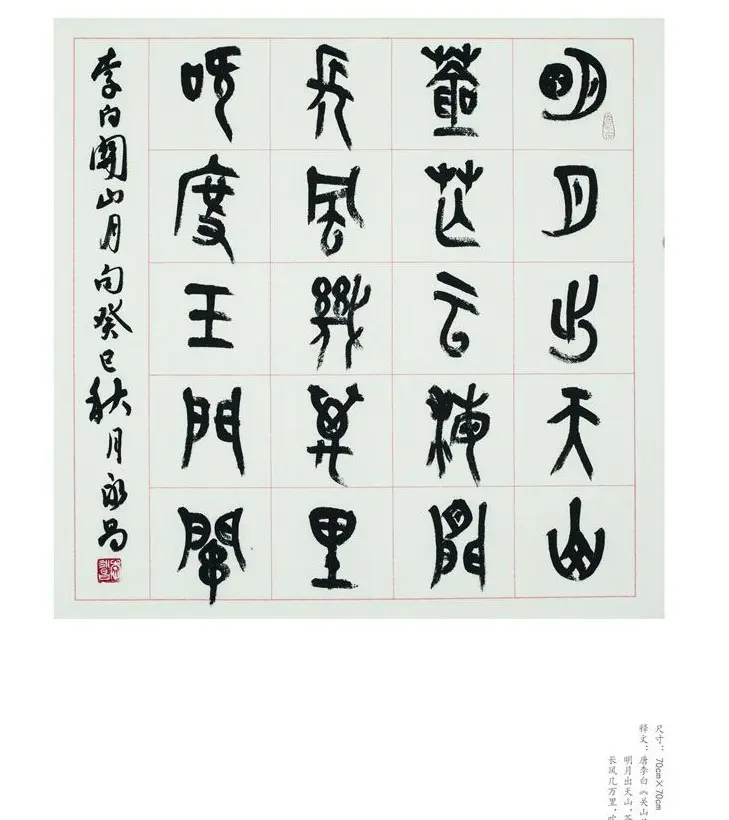 明月出天山
蒼茫云海間
長風幾萬里
吹度玉門關
李白關山月句癸巳秋月永昌
尺寸：70cm×70cm
释文：唐李白《关山
明月出天山，苍
长风几万里，吹